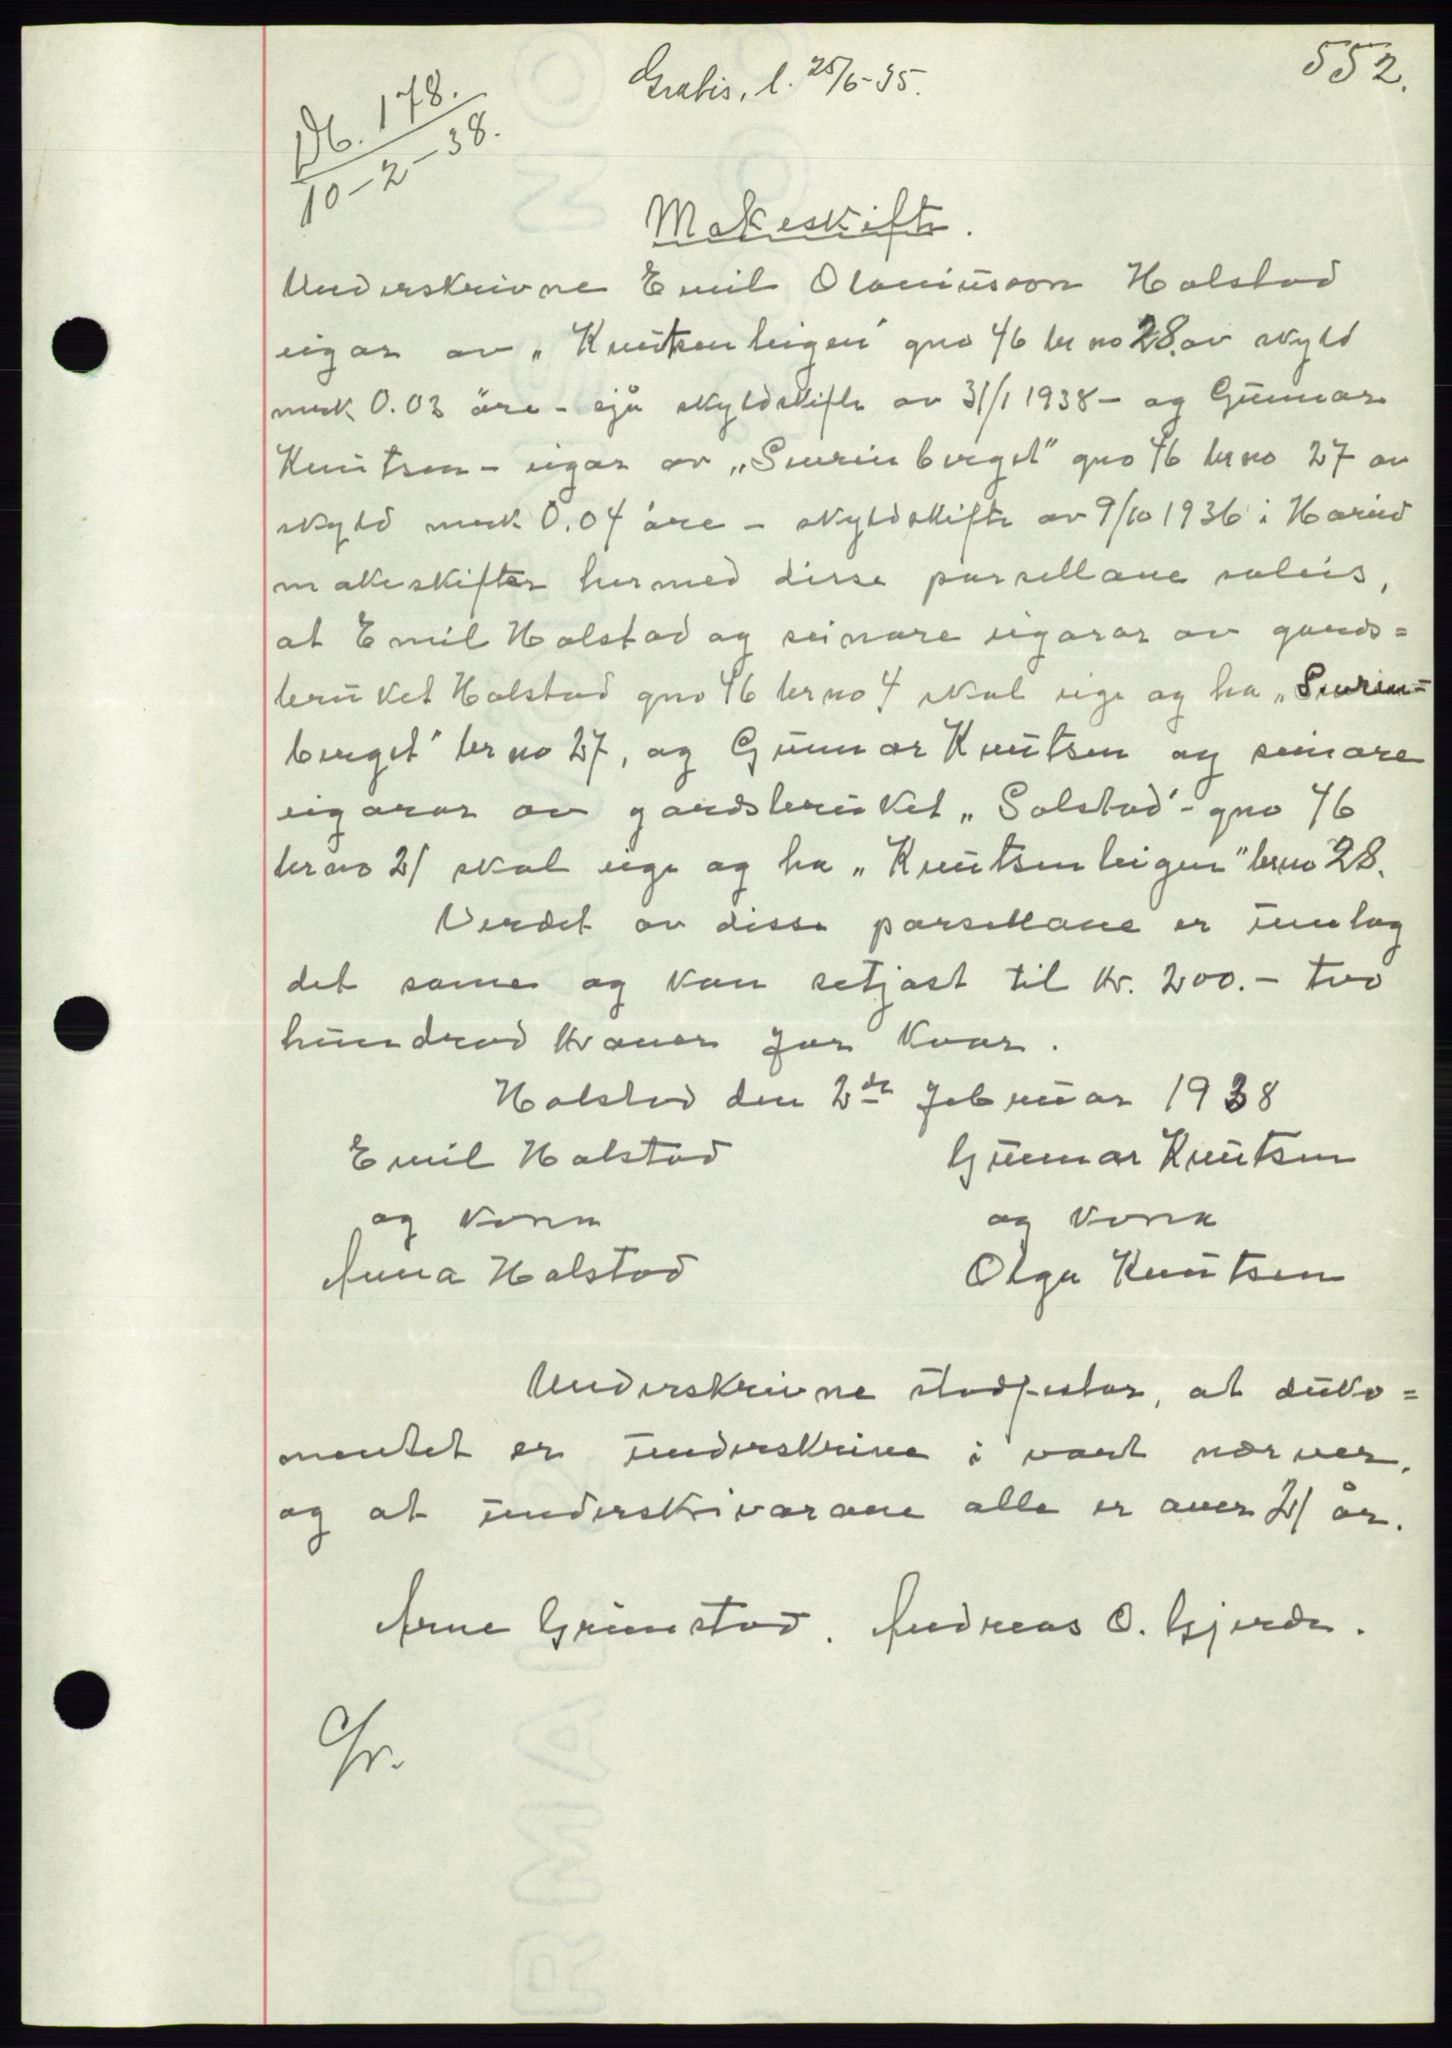 552.
Gratis, l. 25/6-35.
Db. 178.
10-2-38.
Makeskifte.
Underskrivne Emil Olaniusson Halstad
eigar av „Knutsenteigen" gno 46 br no 28. av skyld
mrk 0.03 øre - sjå skyldskifte av 31/1 1938 - og Gunnar
Knutsen - eigar av „Smørinberget" gno 46 br no 27 av
skyld mrk 0.04 øre - skyldskifte av 9/10 1936 i Hareid
makeskifter hermed disse parsellane soleis,
at Emil Halstad og seinare eigarar av gards=
bruket Halstad gno 46 br no 4 skal eige og ha „Smørin=
berget" br no 27, og Gunnar Knutsen og seinare
eigarar av gardsbruket „Solstad" - gno 46
br no 21 skal eige og ha „Knutsenteigen" br no 28.
Verdet av disse parsellane er umlag
det same og kan setjast til kr. 200.- tvo
hundrad kroner for kvar.
Halstad den 2de februar 1938
Emil Halstad Gunnar Knutsen
og kona og kona
Anna Halstad Olga Knutsen
Underskrivne stadfestar, at doku=
mentet er underskrive i vart nærver,
og at underskrivarane alle er over 21 år.
Arne Grimstad. Andreas O. Gjerde.